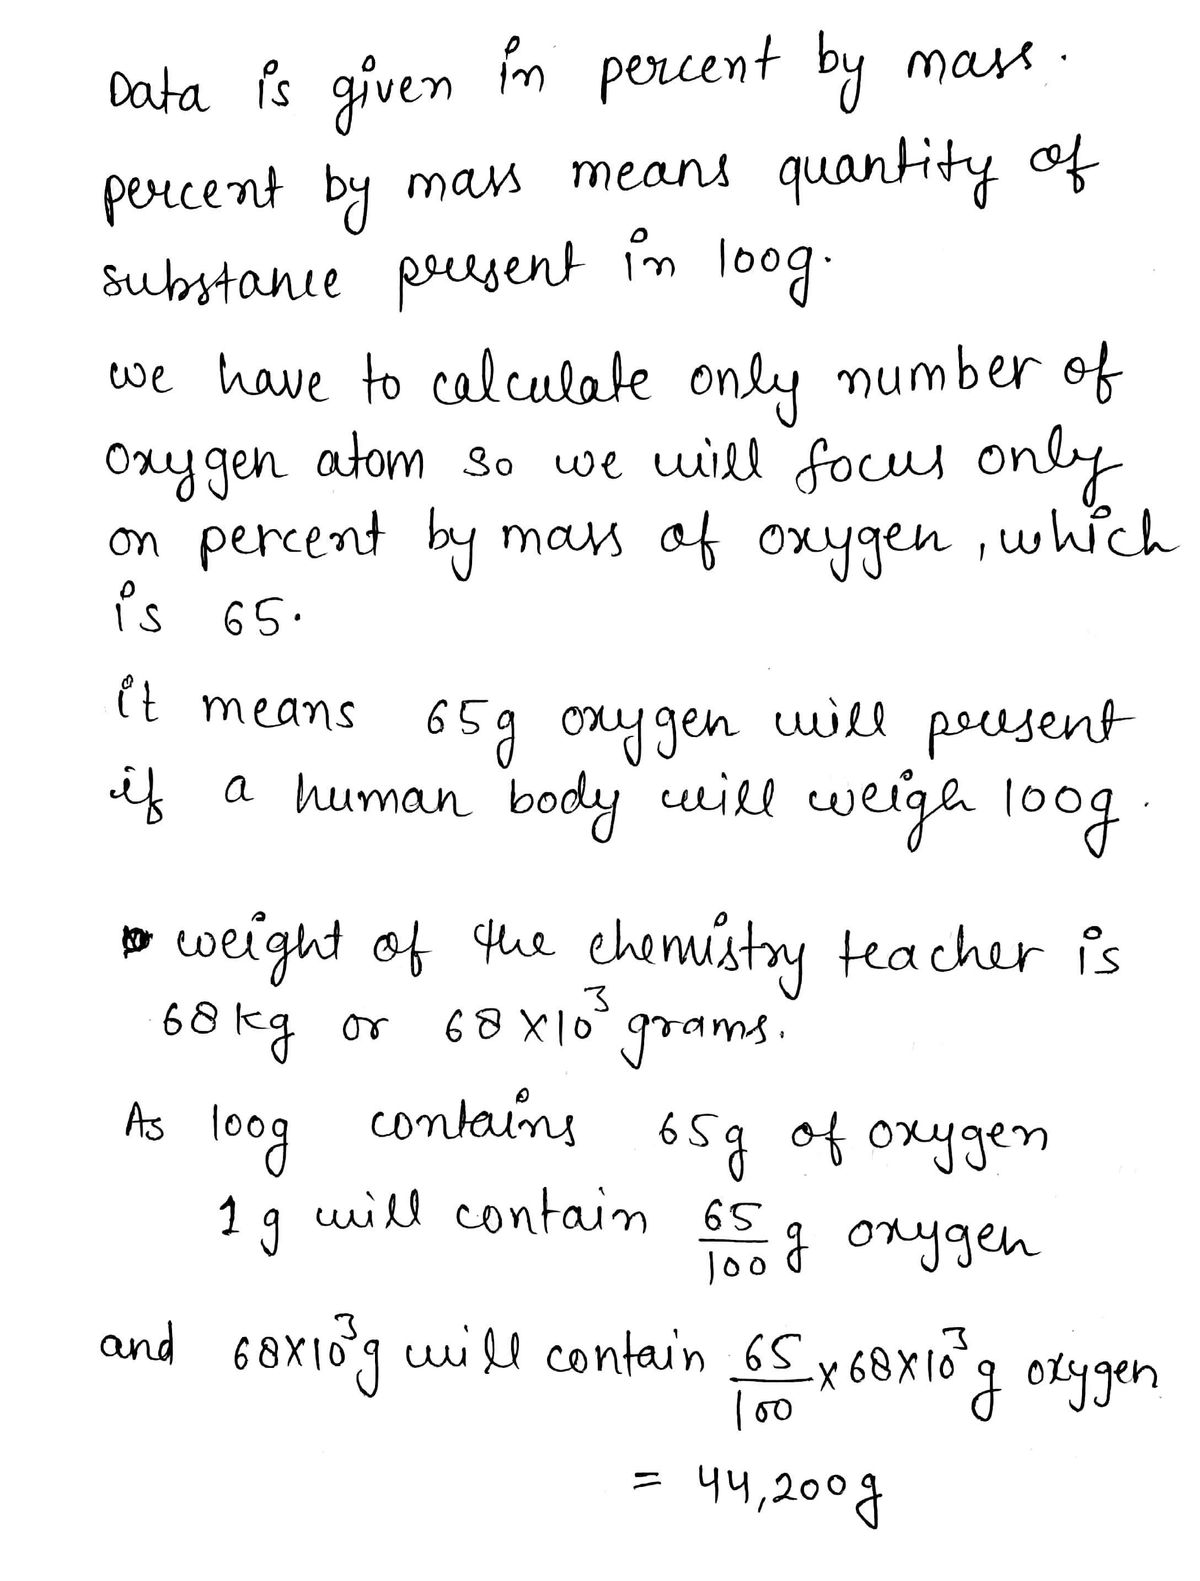 Data is given in percent by mass.
percent by mass means quantity of
substance present in 100g.
we have to calculate only number of
oxygen atom so we will focus only
on percent by mass of oxygen, which
is 65.
it means 65g oxygen will present
if a human body will weigh 100g.
weight of the chemistry teacher is
68 kg or 68 X 10³ grams.
As 100g contains 65g of oxygen
1 g will contain 65/100 g oxygen
and 68X10³g will contain 65/100 x 68X10³ g oxygen
= 44,200g